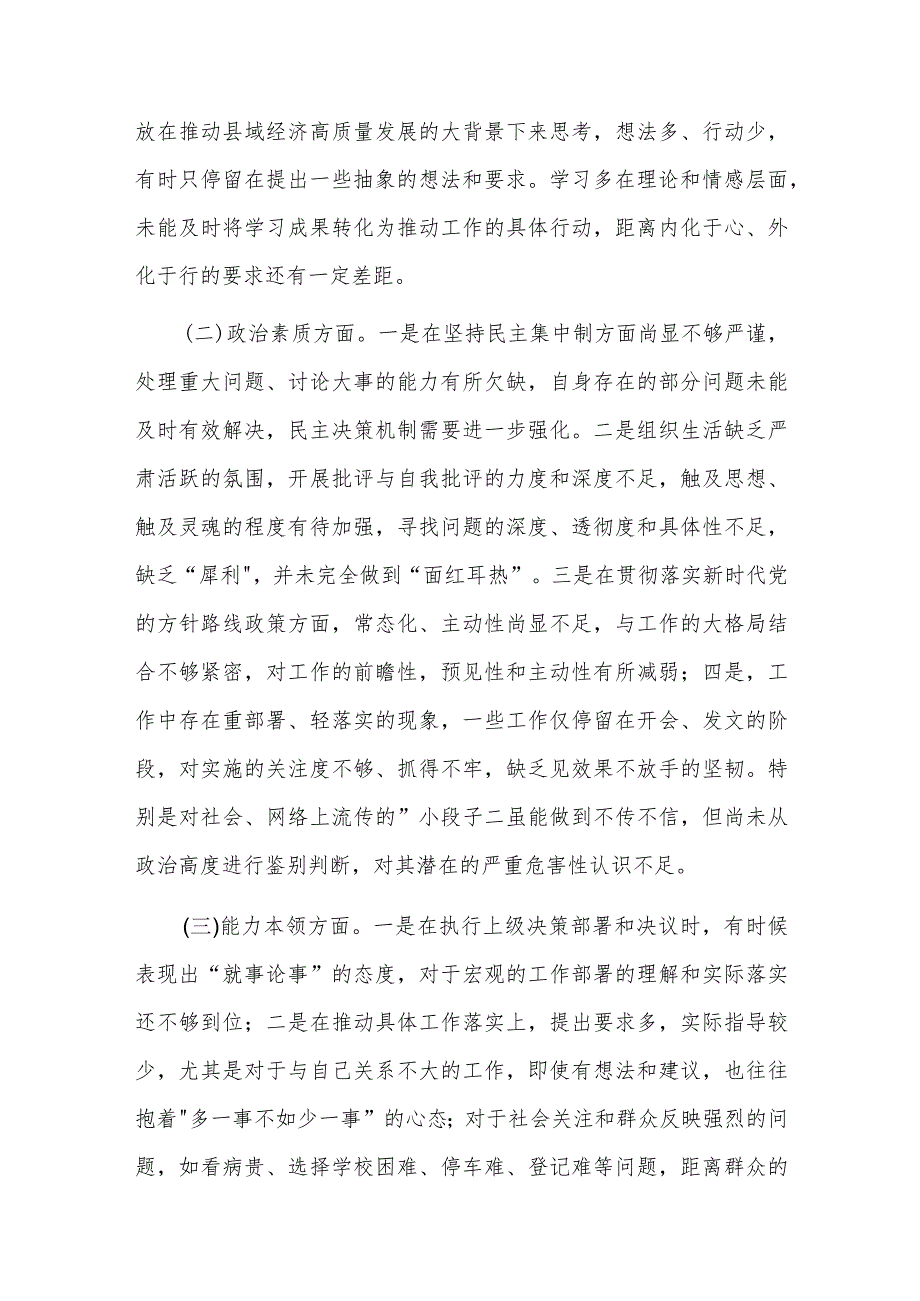 放在推动县域经济高质量发展的大背景下来思考，想法多、行动少，
有时只停留在提出一些抽象的想法和要求。学习多在理论和情感层面，
未能及时将学习成果转化为推动工作的具体行动，距离内化于心、外
化于行的要求还有一定差距。
(二)政治素质方面。一是在坚持民主集中制方面尚显不够严谨，
处理重大问题、讨论大事的能力有所欠缺，自身存在的部分问题未能
及时有效解决，民主决策机制需要进一步强化。二是组织生活缺乏严
肃活跃的氛围，开展批评与自我批评的力度和深度不足，触及思想、
触及灵魂的程度有待加强，寻找问题的深度、透彻度和具体性不足，
缺乏“犀利"，并未完全做到“面红耳热”。三是在贯彻落实新时代党
的方针路线政策方面，常态化、主动性尚显不足，与工作的大格局结
合不够紧密，对工作的前瞻性，预见性和主动性有所减弱；四是，工
作中存在重部署、轻落实的现象，一些工作仅停留在开会、发文的阶
段，对实施的关注度不够、抓得不牢，缺乏见效果不放手的坚韧。特
别是对社会、网络上流传的”小段子二虽能做到不传不信，但尚未从
政治高度进行鉴别判断，对其潜在的严重危害性认识不足。
(三)能力本领方面。一是在执行上级决策部署和决议时，有时候
表现出“就事论事”的态度，对于宏观的工作部署的理解和实际落实
还不够到位；二是在推动具体工作落实上，提出要求多，实际指导较
少，尤其是对于与自己关系不大的工作，即使有想法和建议，也往往
抱着"多一事不如少一事”的心态；对于社会关注和群众反映强烈的问
题，如看病贵、选择学校困难、停车难、登记难等问题，距离群众的